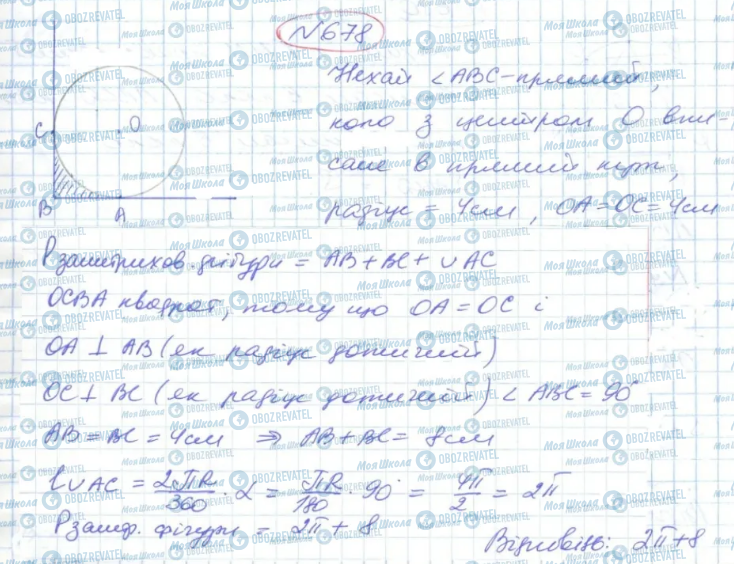 №678
Нехай <ABC-прямий,
коло з центром O впи-
сане в прямий кут,
радіус = 4см, OA=OC=4см
C
O
B
A
P заштрихов. фігури = AB+BC+∪AC
OCBA квадрат, тому що OA=OC і
OA⊥AB (як радіус дотичний)
OC⊥BC (як радіус дотичний) <ABC=90°
AB=BC=4см ⇒ AB+BC=8см
l∪AC = 2πR/360 · α = πR/180 · 90° = 4π/2 = 2π
P заштр. фігури = 2π+8
Відповідь: 2π+8
Моя Школа
OBOZREVATEL